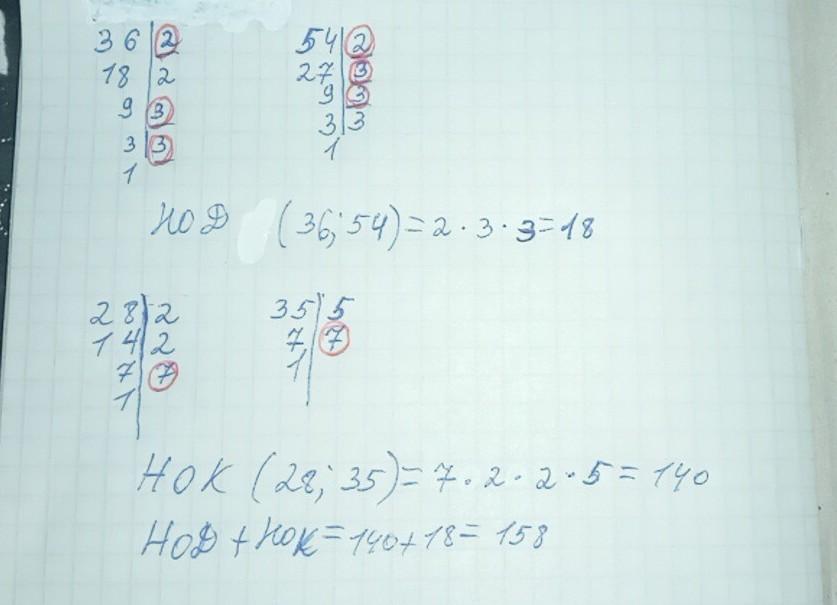 36|2 54|2
18|2 27|3
9|3 9|3
3|3 3|3
1 1
НОД (36; 54) = 2 · 3 · 3 = 18
28|2 35|5
14|2 7|7
7|7 1
1
НОК (28; 35) = 7 · 2 · 2 · 5 = 140
НОД + НОК = 140 + 18 = 158